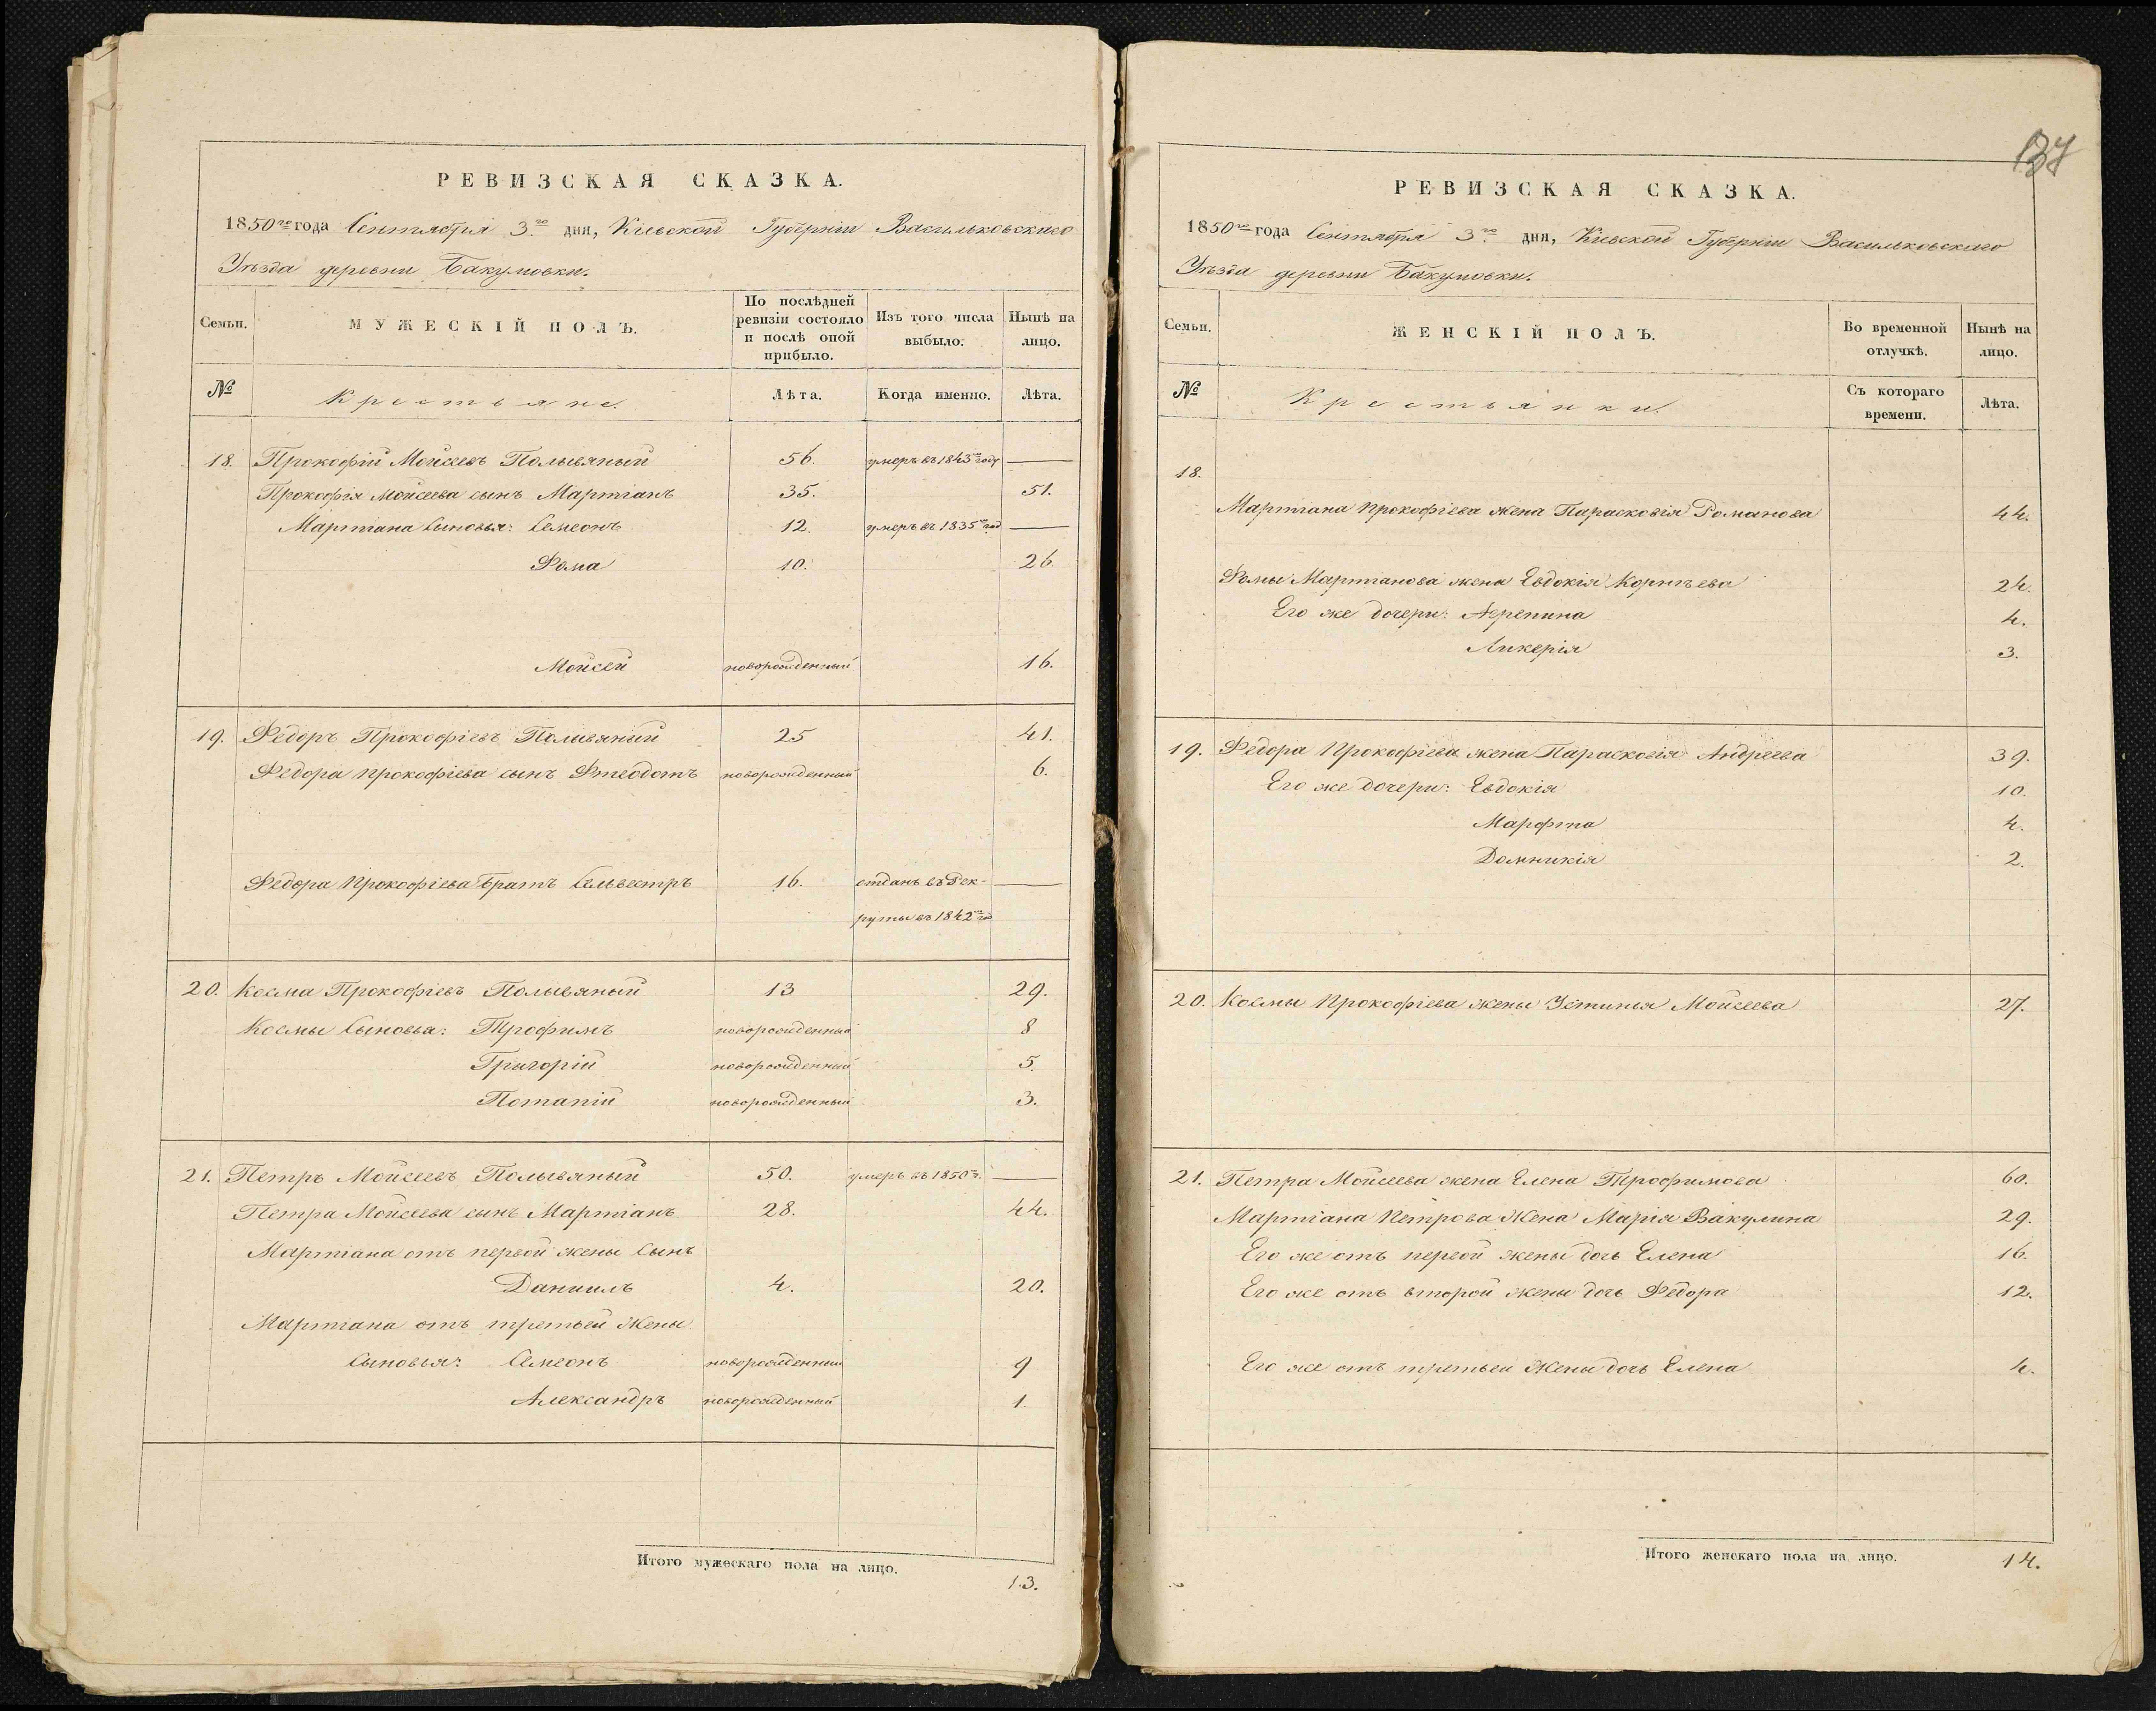 РЕВИЗСКАЯ СКАЗКА.
1850го года Сентября 3го дня, Кіевской Губерніи Васильковскаго
Уѣзда деревни Бакумовки.
Семьи. МУЖЕСКІЙ ПОЛЪ. По послѣдней ревизіи состояло и послѣ оной прибыло. Изъ того числа выбыло. Нынѣ на лицо.
№ Крестьяне. Лѣта. Когда именно. Лѣта.
18. Прокофій Мойсеевъ Полывяный 56. умеръ въ 1843го году —
Прокофія Мойсеева сынъ Мартіанъ 35. 51.
Мартіана Сыновья: Семеонъ 12. умеръ въ 1835го год —
Фома 10. 26.
Мойсей новорожденный 16.
19. Федоръ Прокофіевъ Полывяный 25 41.
Федора Прокофіева сынъ Фтеодотъ новорожденный 6.
Федора Прокофіева братъ Сельвестръ 16. отданъ въ Рек- —
руты въ 1842го
20. Косма Прокофіевъ Полывяный 13 29.
Космы Сыновья: Трофимъ новорожденный 8
Григорій новорожденный 5.
Потапій новорожденный 3.
21. Петръ Мойсеевъ Полывяный 50. умеръ въ 1850го. —
Петра Мойсеева сынъ Мартіанъ 28. 44.
Мартіана отъ первой жены Сынъ
Даниилъ 4. 20.
Мартіана отъ третьей Жены
Сыновья: Семеонъ новорожденный 9
Александръ новорожденный 1.
Итого мужескаго пола на лицо. 13.
137
РЕВИЗСКАЯ СКАЗКА.
1850го года Сентября 3го дня, Кіевской Губерніи Васильковскаго
Уѣзда деревни Бакумовки.
Семьи. ЖЕНСКІЙ ПОЛЪ. Во временной отлучкѣ. Нынѣ на лицо.
№ Крестьянки. Съ котораго времени. Лѣта.
18.
Мартіана Прокофіева жена Парасковія Романова 44.
Фомы Мартіанова жена Евдокія Корнѣева 24.
Его же дочери: Агрепина 4.
Ликерія 3.
19. Федора Прокофіева жена Парасковія Андреева 39.
Его же дочери: Евдокія 10.
Марфта 4.
Домникія 2.
20. Космы Прокофіева жены Устинья Мойсеева 27.
21. Петра Мойсеева жена Елена Трофимова 60.
Мартіана Петрова Жена Марія Вакулина 29.
Его же отъ первой жены дочь Елена 16.
Его же отъ второй жены дочь Федора 12.
Его же отъ третьей Жены дочь Елена 4.
Итого женскаго пола на лицо. 14.